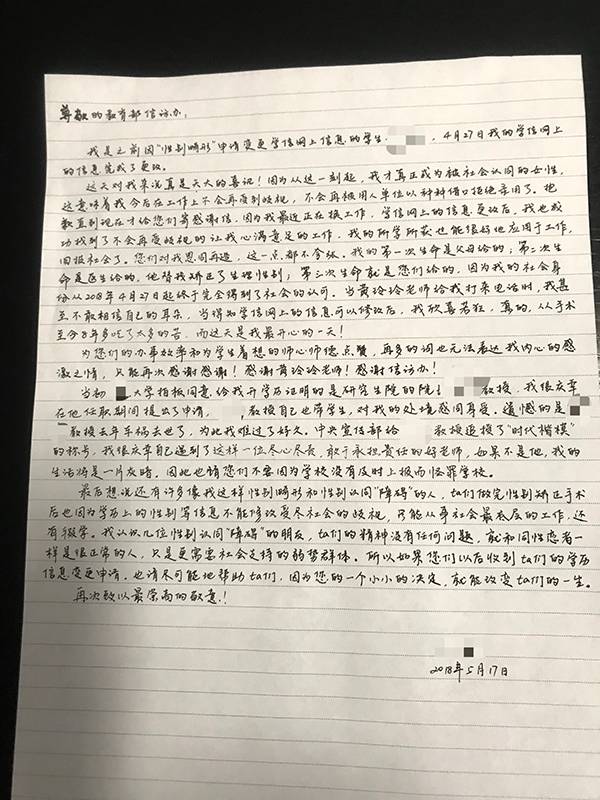 尊敬的教育部信访办：
我是之前因“性别畸形”申请变更学信网上信息的学生，4月27日我的学信网上
的信息完成了更改。
这天对我来说真是天大的喜讯！因为从这一刻起，我才真正成为被社会认同的女性，
这意味着我今后在工作上不会再受到歧视，不会再被用人单位以种种借口拒绝录用了。抱
歉直到现在才给您们寄感谢信，因为我最近正在换工作，学信网上的信息更改后，我也成
功找到了不会再受歧视的让我心满意足的工作，我的所学所获也能很好地应用于工作，
回报社会了。您们对我恩同再造，这一点都不夸张。我的第一次生命是父母给的；第二次生
命是医生给的，他替我矫正了生理性别；第三次生命就是您们给的，因为我的社会身
份从2018年4月27日起终于完全得到了社会的认可。当黄玲玲老师给我打来电话时，我甚
至不敢相信自己的耳朵，当得知学信网上的信息可以修改后，我欣喜若狂，真的，从手术
至今8年多吃了太多的苦，而这天是我最开心的一天！
为您们的办事效率和为学生着想的师心师德点赞，再多的词也无法表达我内心的感
激之情，只能再次感谢感谢！感谢黄玲玲老师！感谢信访办！
当初大学拍板同意给我开学历证明的是研究生院的院教授，我很庆幸
在他任职期间提出了申请，教授自己也带学生，对我的处境感同身受。遗憾的是
教授去年车祸去世了，为此我难过了好久。中央宣传部给教授追授了“时代楷模”
的称号，我很庆幸自己遇到了这样一位尽心尽责，敢于承担责任的好老师，如果不是他，我的
生活将是一片灰暗。因此也请您们不要因为学校没有及时上报而怪罪学校。
最后想说还有许多像我这样性别畸形和性别认同“障碍”的人，ta们做完性别矫正手术
后也因为学历上的性别等信息不能修改受尽社会的歧视，只能从事社会最底层的工作，还
有辍学。我认识几位性别认同“障碍”的朋友，ta们的精神没有任何问题，就和同性恋者一
样是很正常的人，只是更需要社会支持的弱势群体。所以如果您们以后收到ta们的学历
信息变更申请，也请尽可能地帮助ta们，因为您的一个小小的决定，就能改变ta们的一生。
再次致以最崇高的敬意！
2018年5月17日